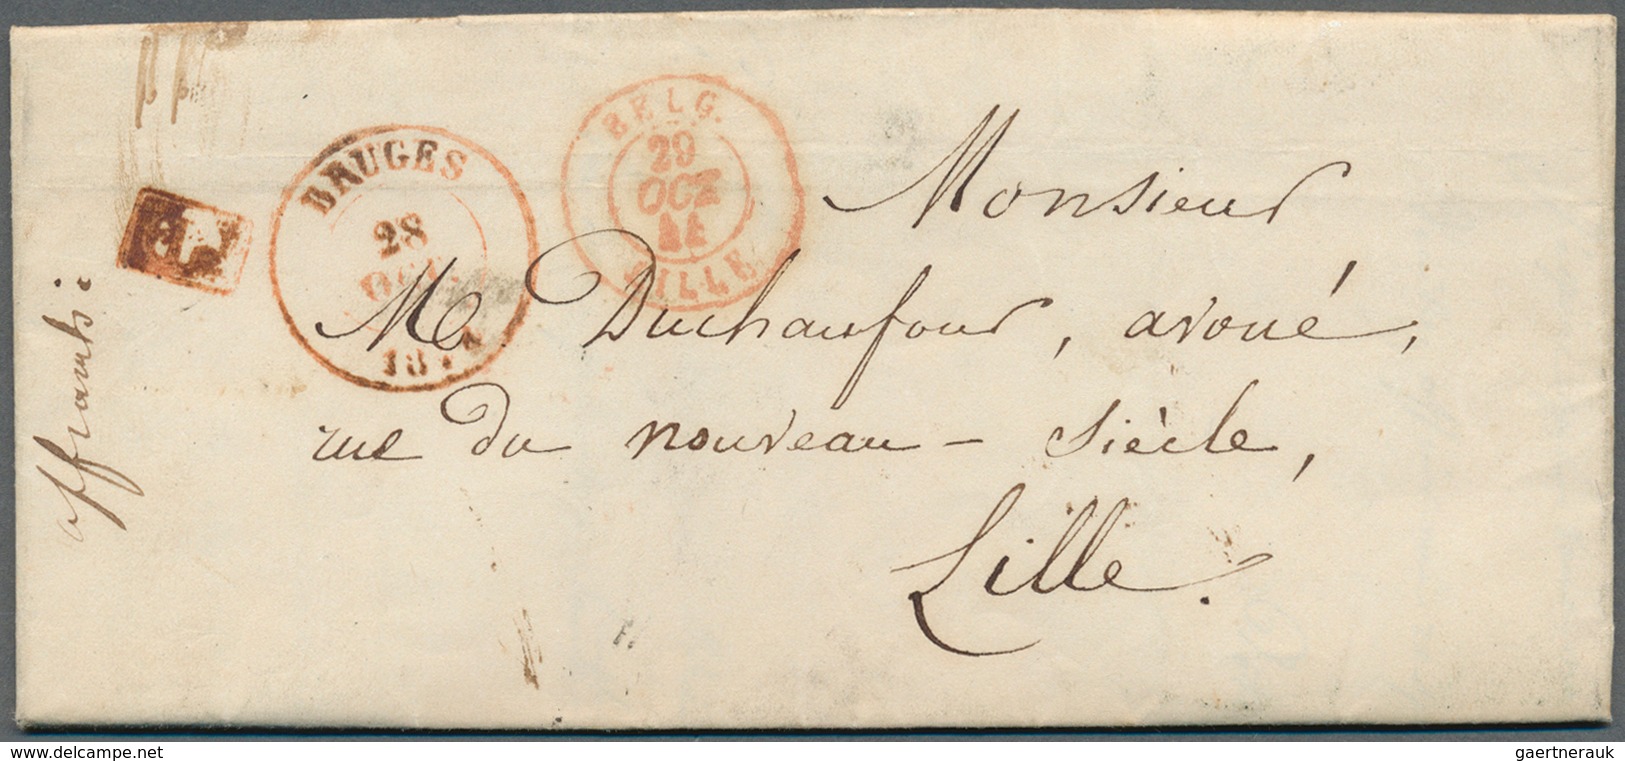 BRUGES
28
OCT.
BELG.
29
OCT
44
LILLE
Monsieur
M. Duchaufour, avoué,
rue du nouveau - siècle,
Lille.
affranchi:
F.
www.delcampe.net
gaertnerauk